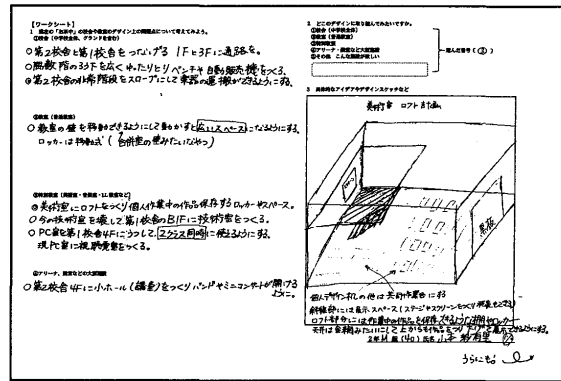 【ワークシート】
1 現在の「お茶中」の校舎や教室のデザイン上の問題点について考えてみよう。
①校舎（中学校全体、グランドを含む）
○第2校舎と第1校舎をつなげる 1Fと3Fに通路を。
を広く ゆったりと ベンチや自動販売機をつくる。
◎第2校舎の非常階段をスロープにして楽器の運搬ができるようにする。
②教室（普通教室）
○教室の壁を移動できるようにして動かすと広いスペースになるようにする。
ロッカーは移動式
③特別教室（美術室・音楽室・LL教室など）
◎美術室にロフトをつくり個人作業中の作品保存するロッカーやスペース。
○今の技術室を壊して第1校舎のB1Fに技術室をつくる。
○PC室を第1校舎4Fにうつして2クラス同時に使えるようにする。
現PC室に視聴覚室をつくる。
④アリーナ、講堂などの大型施設
○第2校舎4Fに小ホール（講堂）をつくりバンドやミニコンサートが開けるように。
2 どこのデザインに取り組んでみたいですか。
①校舎（中学校全体）
②教室（普通教室）
③特別教室
④アリーナ・講堂など大型施設
⑤その他 こんな施設が欲しい
選んだ番号（③）
3 具体的なアイデアやデザインスケッチなど
美術室 ロフト計画
黒板
個人デザイン机の他は共同作業台にする
には展示スペース（ステージやスクリーンをつくり
ロフト部分には作業中の作品を保存できるような棚やロッカー
天井は
2年 組（40）氏名
うらにも